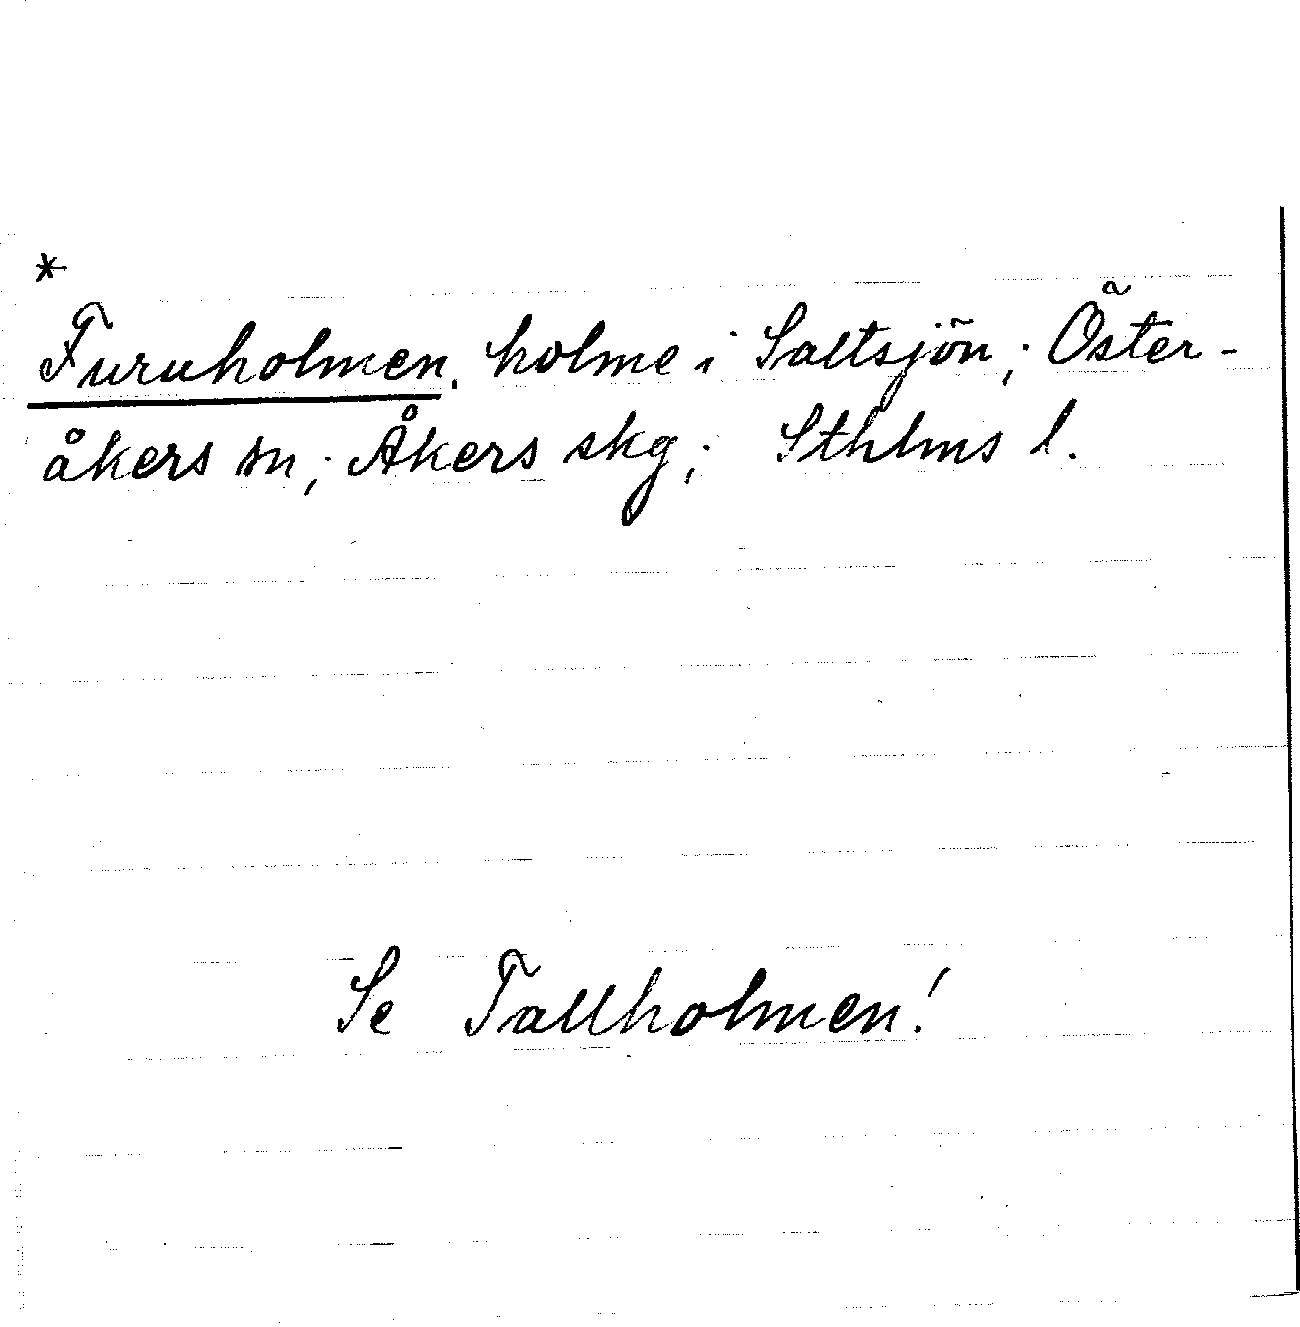 *
Furuholmen, holme i Saltsjön; Öster-
åkers sn; Åkers skg; Sthlms l.
Se Tallholmen!